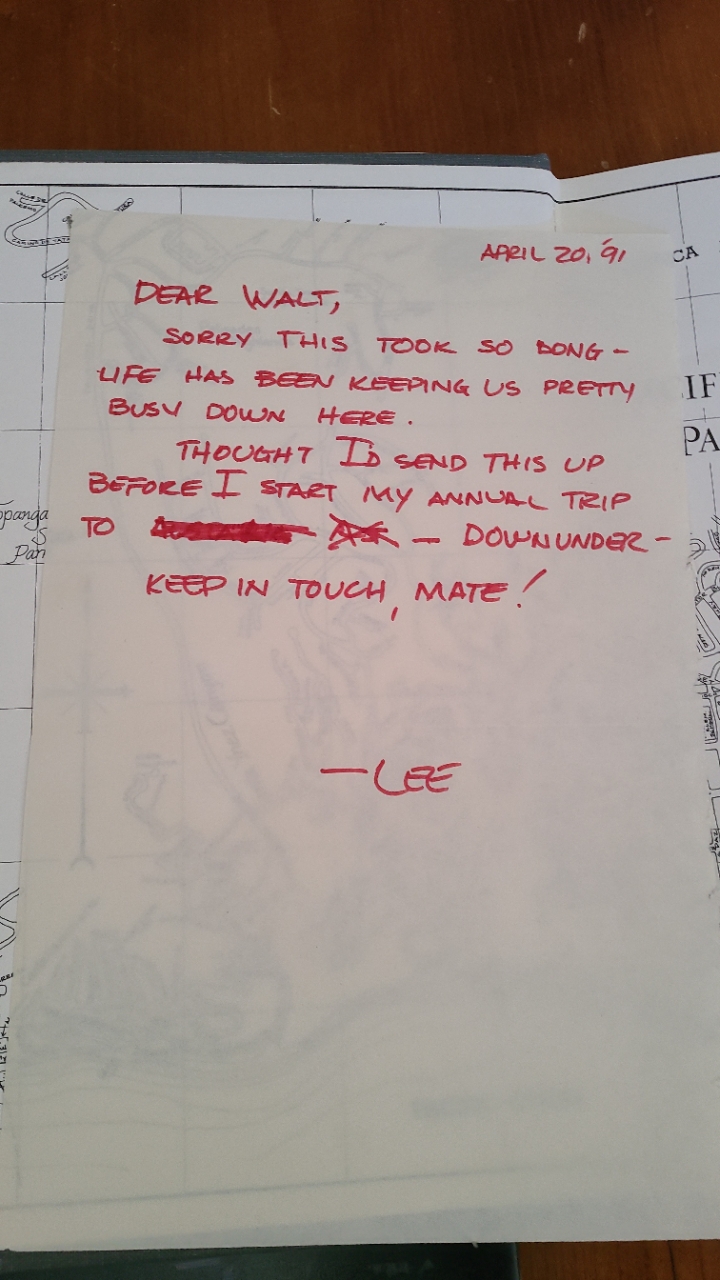 APRIL 20, '91
DEAR WALT,
SORRY THIS TOOK SO LONG –
LIFE HAS BEEN KEEPING US PRETTY
BUSY DOWN HERE.
THOUGHT I'D SEND THIS UP
BEFORE I START MY ANNUAL TRIP
TO — DOWNUNDER –
KEEP IN TOUCH, MATE!
— LEE
CA
IF
PA
opanga
S
Pan